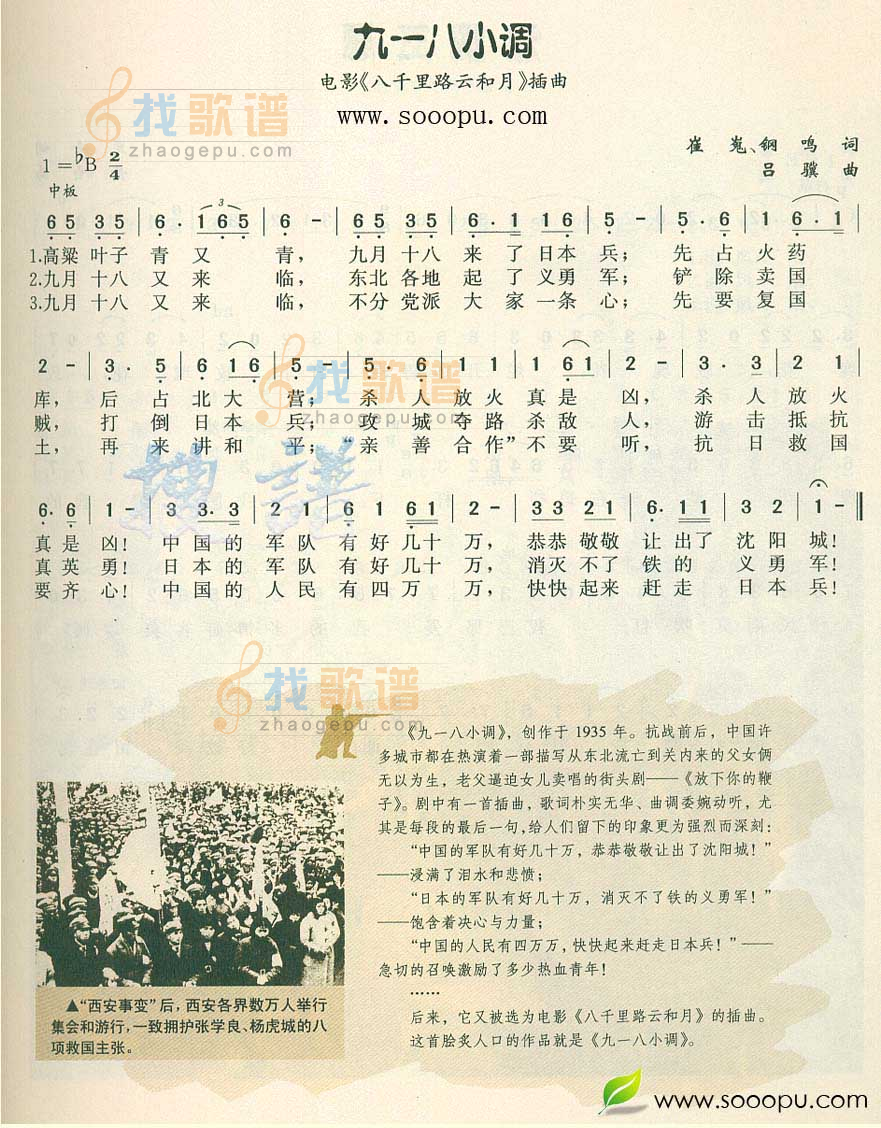 九一八小调
电影《八千里路云和月》插曲
www.sooopu.com
找歌谱
zhaogepu.com
1=♭B 2/4
崔嵬、钢鸣词
中板
吕骥曲
6 5 3 5 | 6 · 1 6 5 | 6 - | 6 5 3 5 | 6 · 1 1 6 | 5 - | 5 · 6 | 1 6 · 1 |
1.高粱叶子青又青，九月十八来了日本兵；先占火药
2.九月十八又来临，东北各地起了义勇军；铲除卖国
3.九月十八又来临，不分党派大家一条心；先要复国
2 - | 3 · 5 | 6 1 6 | 5 - | 5 · 6 | 1 1 | 1 6 1 | 2 - | 3 · 3 | 2 1 |
找歌谱
zhaogepu.com
库，后占北大营；杀人放火真是凶，杀人放火
贼，打倒日本兵；攻城夺路杀敌人，游击抵抗
土，再来讲和平；“亲善合作”不要听，抗日救国
搜谱
6 · 6 | 1 - | 3 3 · 3 | 2 1 | 6 1 6 1 | 2 - | 3 3 2 1 | 6 · 1 1 | 3 2 | 1 - ‖
真是凶！中国的军队有好几十万，恭恭敬敬让出了沈阳城！
真英勇！日本的军队有好几十万，消灭不了铁的义勇军！
要齐心！中国的人民有四万万，快快起来赶走日本兵！
找歌谱
zhaogepu.com
《九一八小调》，创作于1935年。抗战前后，中国许
多城市都在热演着一部描写从东北流亡到关内来的父女俩
无以为生，老父逼迫女儿卖唱的街头剧——《放下你的鞭
子》。剧中有一首插曲，歌词朴实无华、曲调委婉动听，尤
其是每段的最后一句，给人们留下的印象更为强烈而深刻：
“中国的军队有好几十万，恭恭敬敬让出了沈阳城！”
——浸满了泪水和悲愤；
“日本的军队有好几十万，消灭不了铁的义勇军！”
——饱含着决心与力量；
“中国的人民有四万万，快快起来赶走日本兵！”——
急切的召唤激励了多少热血青年！
……
后来，它又被选为电影《八千里路云和月》的插曲。
这首脍炙人口的作品就是《九一八小调》。
▲“西安事变”后，西安各界数万人举行
集会和游行，一致拥护张学良、杨虎城的八
项救国主张。
www.sooopu.com